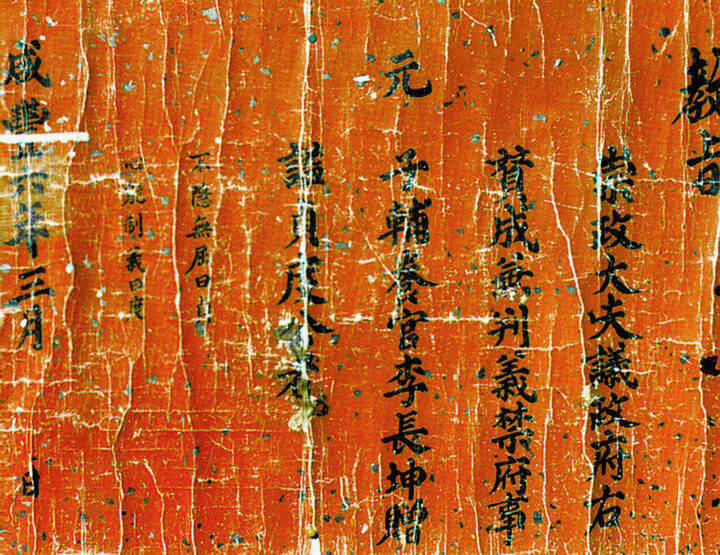 教旨
崇政大夫議政府右
贊成兼判義禁府事
元子輔養官李長坤贈
諡貞度公者
不隱無屈曰貞
心能制義曰度
咸豐六年三月 日